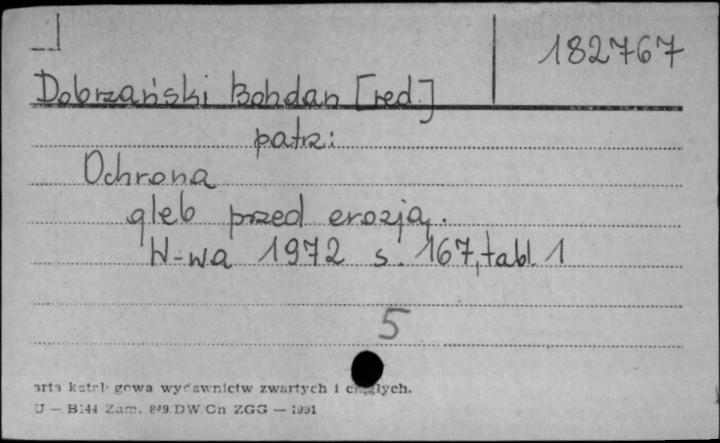 182767
Dobrzański Bohdan [red.]
patrz:
Ochrona
gleb przed erozją.
W-wa 1972 s. 167, tabl. 1
5
wydawnictw zwartych i
U — B144 Zam. DW Cn ZGG — 1991